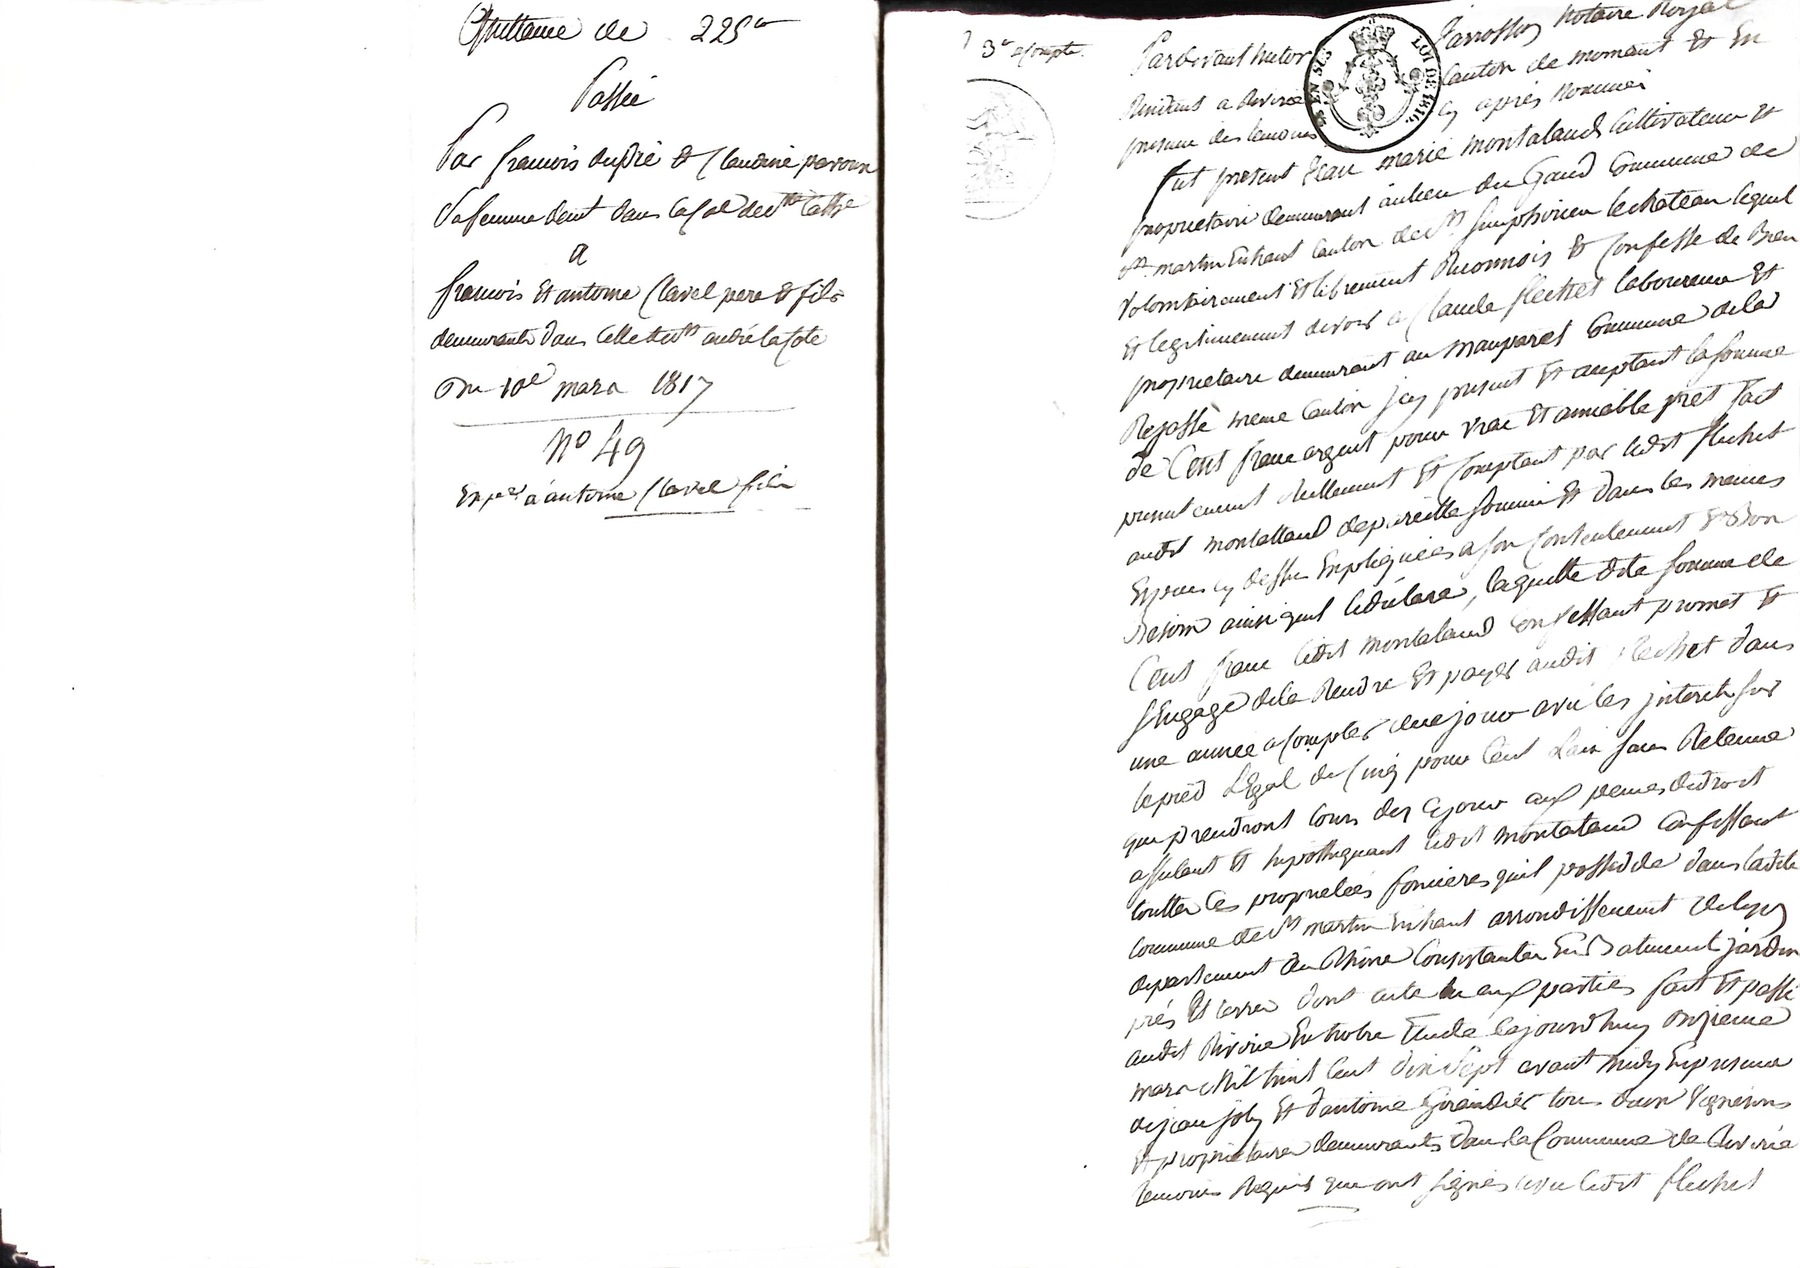 Quittance de 225
Passée
Par francois dupré & Claudine
Sa femme de
a
francois Et antoine Clavel pere & fils
demeurants dans Celle de St andré la Cote
Du 10e mars 1817
No 49
Exp a antoine Clavel fils
3e
Pardevant notaire Royal
Residant a Riverie Canton de mornant Et En
presence des temoins cy après nommés
EN SUS
LOI DE 1816.
fut present Jean marie montaland Cultivateur &
proprietaire demeurant au lieu du Commune de
St martin En haut Canton de St Simphorien le chateau lequel
volontairement Et librement Reconnois & Confesse de Bien
Et legitimement devoir a Claude flechet laboureur Et
proprietaire demeurant au mauparel Commune de la
même Canton Icy present Et acceptant la somme
de Cent franc argent pour vrai Et amiable prêt fait
presentement Reellement Et Comptant par ledit flechet
audit montaland de pareille somme Et dans les memes
Especes cy dessus Expliquées a son Contentement & Bon
Besoin ainsi quil le déclare, laquelle dite somme de
Cent franc ledit montaland Confessant promet &
s'Engage de la Rendre Et payer audit flechet dans
une année a Compter de ce jour avec les interets sur
le pied Légal de Cinq pour Cent Lan sans Retenue
qui prendront Cours des ce jour aux peines de droit
affectant Et hypothequant ledit montaland Confessant
touttes les proprietés foncieres quil possedde dans ladite
Commune de St martin En haut arrondissement de lyon
departement du Rhône Consistantes En Batiment jardin
prés Et terres dont acte lu aux parties fait Et passé
audit Riverie En notre Etude le jourdhuy onzieme
mars Mil huit Cent dix Sept avant midy En presence
de jean joly Et d'antoine tous deux Vignerons
Et proprietaires demeurants dans la Commune de Riverie
temoins Requis qui ont signés avec ledit flechet